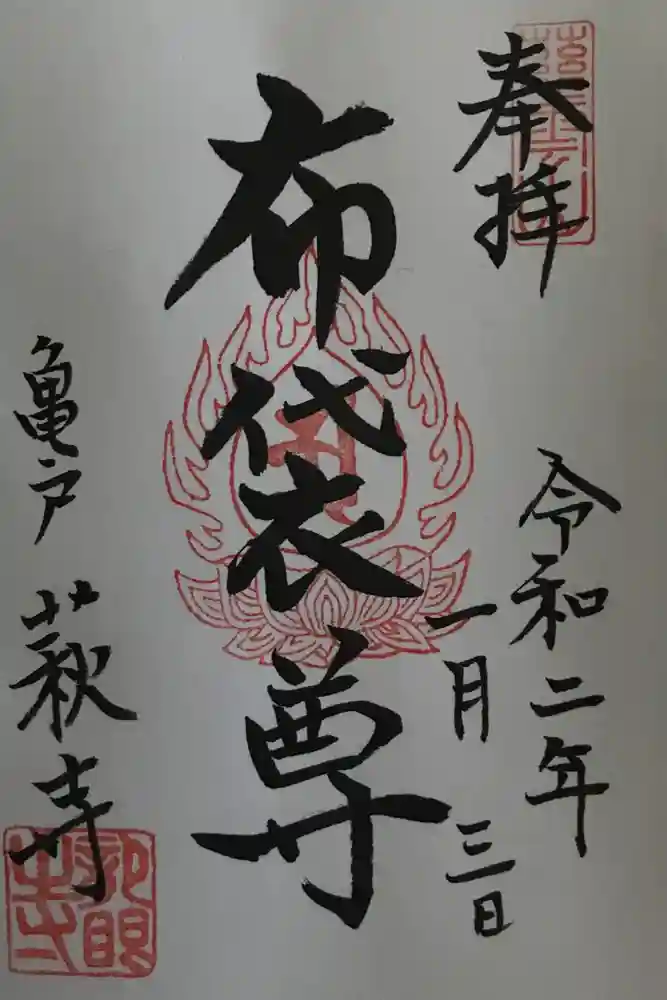 奉拝
令和二年
一月三日
布袋尊
亀戸 萩寺